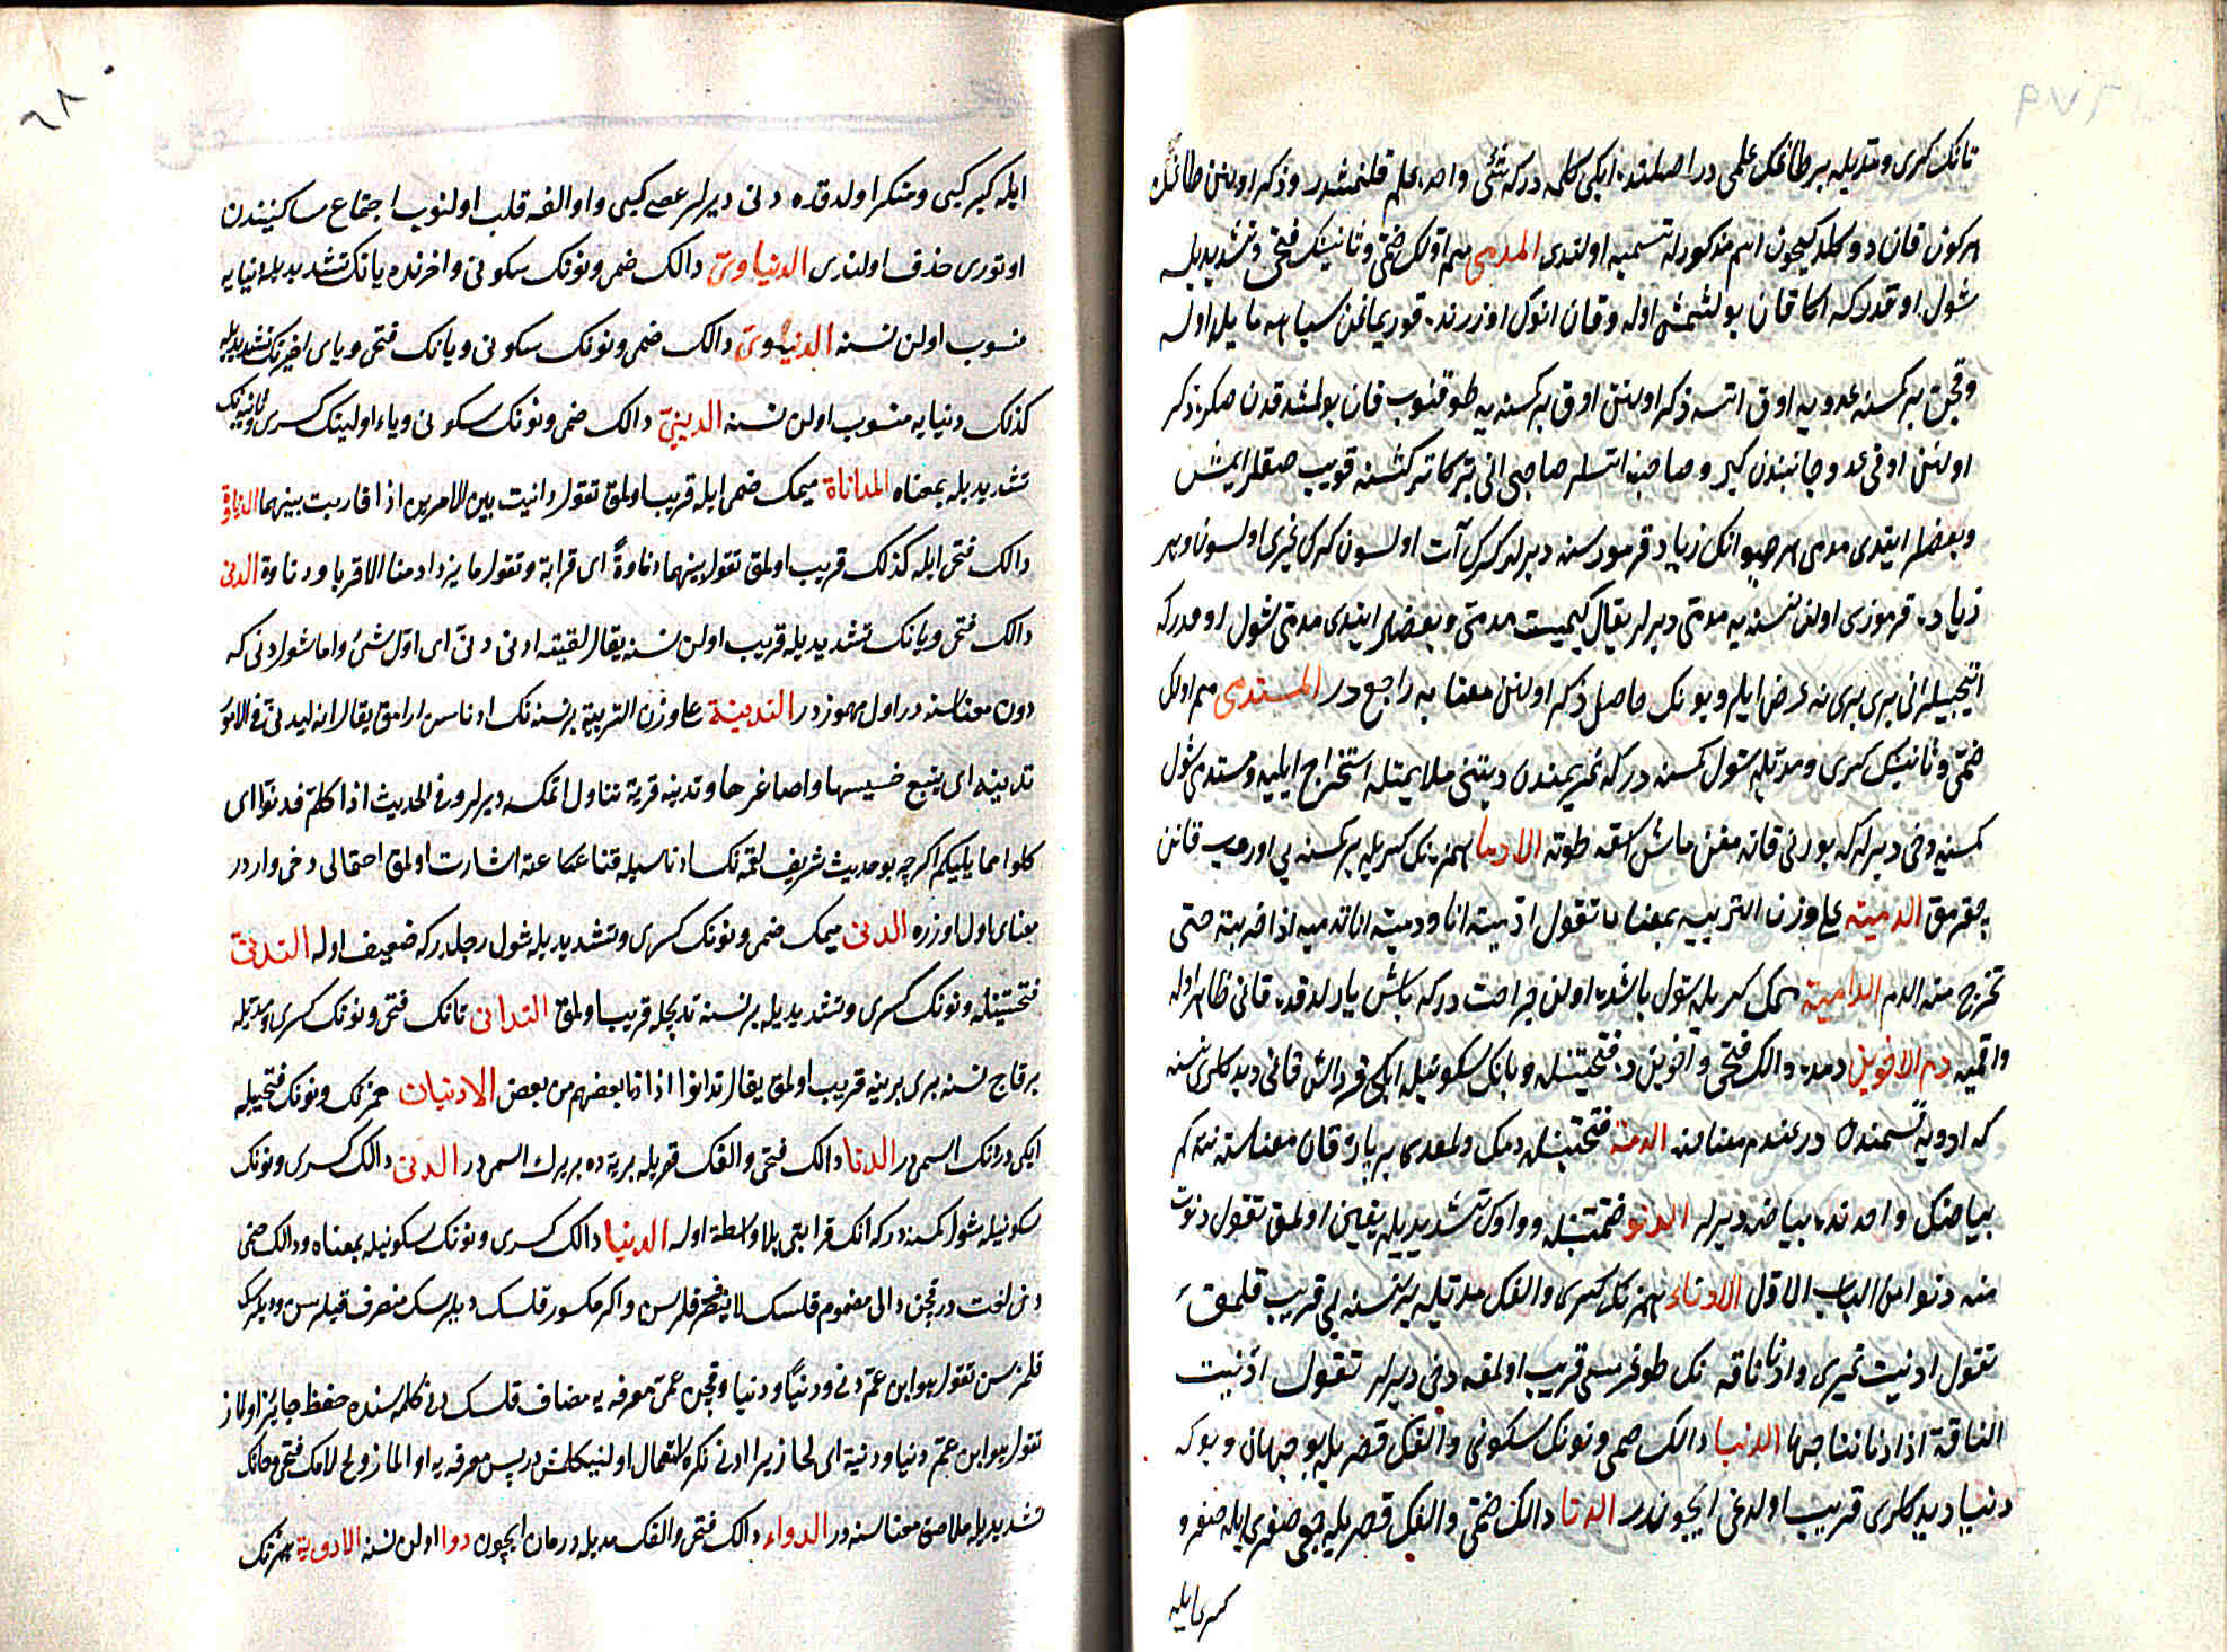 تانك كسرى و مديله بر طاغك علمى در اصلنده ايكى كلمه در كه شئ واحده علم قلنمشدر و ذكر اولنن طاغك
هر كون قان دوكلدكيچون اسم مذكورله تسميه اولندى المدمى ميم اولك ضمى و ثانينك فتحى و تشديديله
شول اوقدر كه اكا قان بولشمش اوله و قان انوك اوزرنده قوريماغن سياهه مايل اوله
و قچن بر كسنه عدويه اوق اتسه ذكر اولنن اوق بر كسنه يه طوقنوب قان بولشدقدن صكره ذكر
اولنن اوقى عدو جانبندن كيرو صاحبنه اتسلر صاحبى انى تبركا تركشنه قويب صقلر ايمش
و بعضلر ايتدى مدمى هر حيوانك زياده قرمزسنه ديرلر كرك آت اولسون كرك غيرى اولسون و هر
زياده قرمزى اولن نسنه يه مدمى ديرلر يقال كميت مدمى و بعضلر ايتدى مدمى شول اوقدر كه
اتيجيلر انى برى برينه عرض ايلر و بونك حاصلى ذكر اولنن معنايه راجع در المستدمى ميم اولك
ضمى و ثانينك كسرى و مديله شول كسنه در كه غريمندن ديننى ملايمتله استخراج ايليه و مستدمى شول
كسنه يه دخى ديرلر كه بورنى قانه مغن باشن اشغه طوته الادماء همزه نك كسريله بر كسنه يى اوروب قانن
چقرمق التدميه على وزن التربيه بمعناه تقول ادميته انا و دميته انا تدميه اذا ضربته حتى
تخرج منه الدم الداميه ميمك كسريله شول باشده اولن جراحت در كه باش يارلدقده قانى ظاهر اوله
و اقميه دم الاخوين دمده دالك فتحى و اخوين ده فتحتينله و يانك سكونيله ايكى قرداش قانى ديدكلرى نسنه
كه ادويه قسمندن در عندم معناسنه الدمة فتحتينله دمك واحدى بر پاره قان معناسنه نته كم
بياضك واحدنده بياضه ديرلر الدنو ضمتينله و واوك تشديديله يقين اولمق تقول دنوت
منه دنوا من الباب الاول الادناء همزه نك كسرى و الفك مديله بر نسنه يى قريب قلمق
تقول ادنيت غيرى و ادنا ناقه نك طوغرمسى قريب اولمغه دخى ديرلر تقول ادنيت
الناقة اذا دنا نتاجها الدنيا دالك ضمى و نونك سكونى و الفك قصريله بو جهان و بوكه
دنيا ديدكلرى قريب اولدغى ايچوندر الدنا دالك ضمى و الفك قصريله جمعى صغرى ايله صغر و
كبرى ايله
ايله كبر كبى و منكر اولدقده دنى ديرلر عصى كبى واو الفه قلب اولنوب اجتماع ساكنيندن
اوتورى حذف اولندى الدنياوى دالك ضمى و نونك سكونى و اخرنده يانك تشديديله دنيايه
منسوب اولن نسنه الدنيوى دالك ضمى و نونك سكونى و يانك فتحى و ياى اخيرنك تشديديله
كذلك دنيايه منسوب اولن نسنه الدنيى دالك ضمى و نونك سكونى و ياء اولينك كسرى و ثانيه نك
تشديديله بمعناه المداناة ميمك ضمى ايله قريب اولمق تقول دانيت بين الامرين اذا قاربت بينهما الدناوة
دالك فتحى ايله كذلك قريب اولمق تقول بينهما دناوة اى قرابة و تقول ما يزداد منا الا قربا و دناوة الدنى
دالك فتحى و يانك تشديديله قريب اولن نسنه يقال لقيته ادنى دنى اى اول شئ و اما شول دنى كه
دون معناسنه در اول مهموزدر التدنية على وزن التربية بر نسنه نك اوناسن ارامق يقال انه ليدنى فى الامور
تدنية اى يتبع خسيسها و اصاغرها و تدنيه قريه تناول اتمكه ديرلر و فى الحديث اذا كلتم فدنوا اى
كلوا مما يليكم اكرچه بو حديث شريف لقمه نك ادناسيله قناعته اشارت اولمق احتمالى دخى واردر
معناى اول اوزره الدنى ميمك ضمى و نونك كسرى و تشديديله شول رجلدر كه ضعيف اوله التدنى
فتحتينله و نونك كسرى و تشديديله بر نسنه تدريجله قريب اولمق التدانى تانك فتحى و نونك كسرى و مديله
بر قاچ نسنه برى برينه قريب اولمق يقال تدانوا اذا دنا بعضهم من بعض الادنيان همزه نك و نونك فتحيله
ايكى درونك اسمى در الدنا دالك فتحى و الفك قصريله بريه ده بر يرك اسمى در الدنى دالك كسرى و نونك
سكونيله شول كمسنه در كه انك قرابتى بلا واسطه اوله الدنيا دالك كسرى و نونك سكونيله بمعناه و دالك ضمى
دخى لغت در قچن دالى مضموم قلسك لا ينصرف قلرسن و اكر مكسور قلسك ديلرسك منصرف قيلرسن و ديلرسك
قلمزسن تقول هو ابن عم دنى و دنيا و دنيا و قچن عمى معرفه يه مضاف قلسك دنى كلمه سنده حفظ جائز اولماز
تقول هو ابن عم دنيا و دنية اى لحا زيرا ادنى نكره استعمال اولنيكلمش در پس معرفه يه اولماز و لح لامك فتحى و حانك
تشديديله ملاصق معناسنه در الدواء دالك فتحى و الفك مديله درمان ايچون دوا اولن نسنه الادوية همزه نك